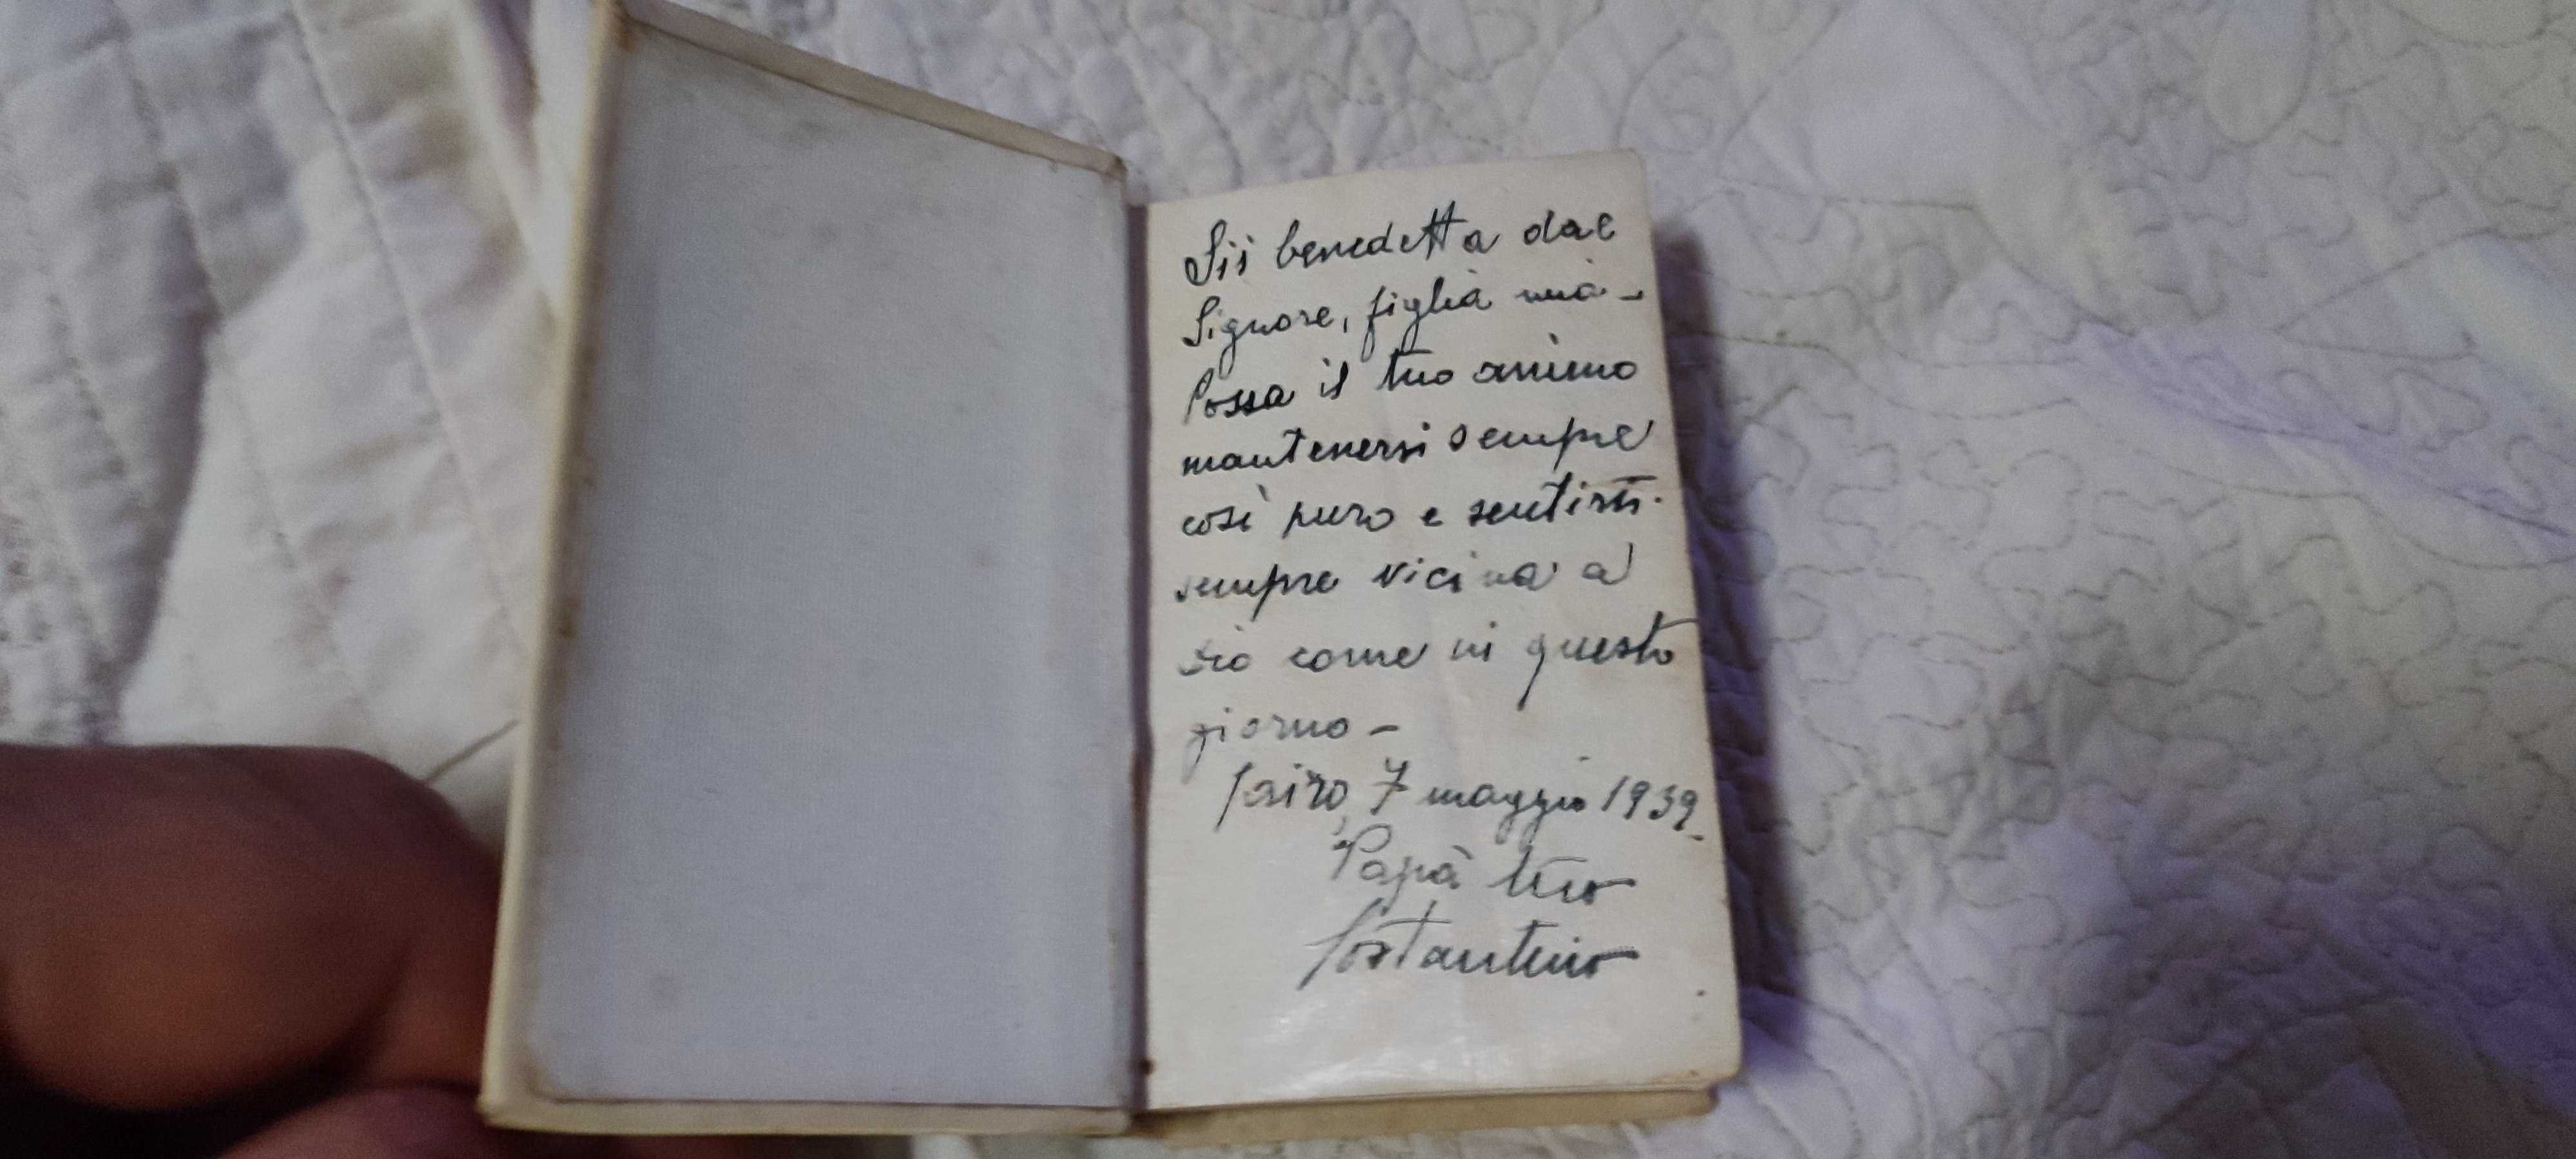 Sii benedetta dal
Signore, figlia mia -
Possa il tuo animo
mantenersi sempre
così puro e sentirti
sempre vicina a
Dio come in questo
giorno -
Cairo, 7 maggio 1939 -
Papà tuo
Costantino